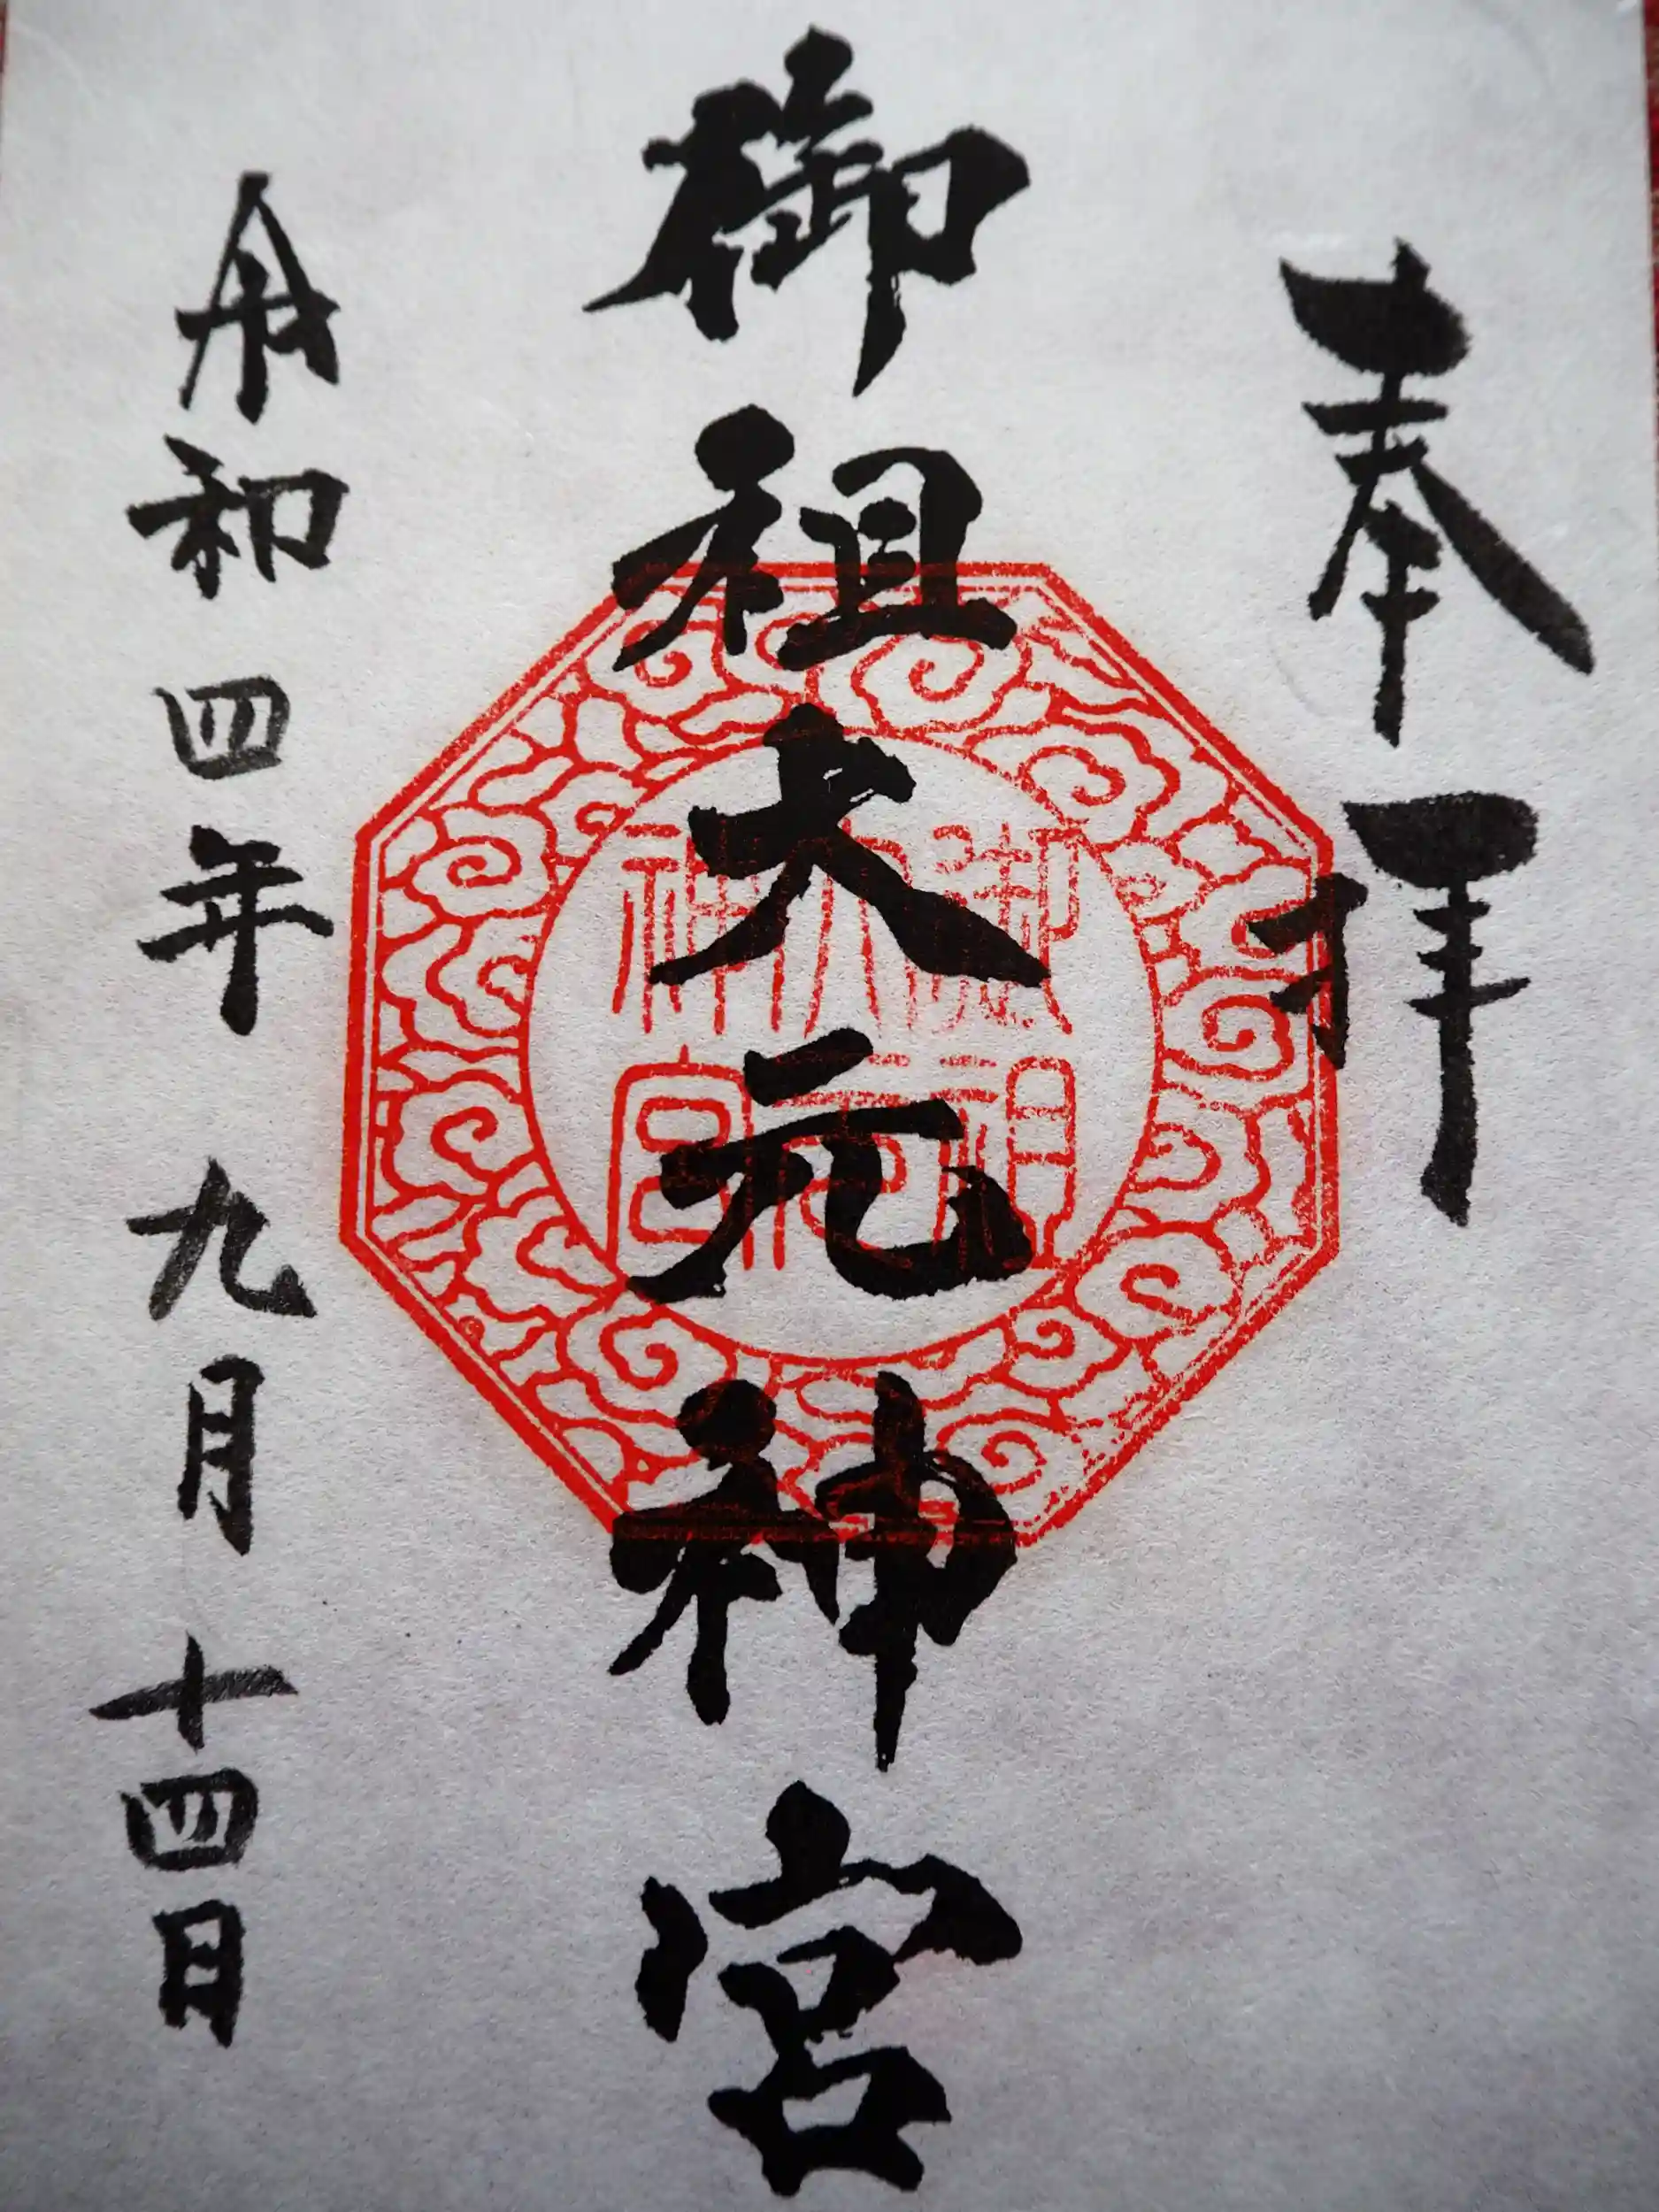 奉拝
御祖大元神宮
令和四年九月十四日
御祖大元神宮